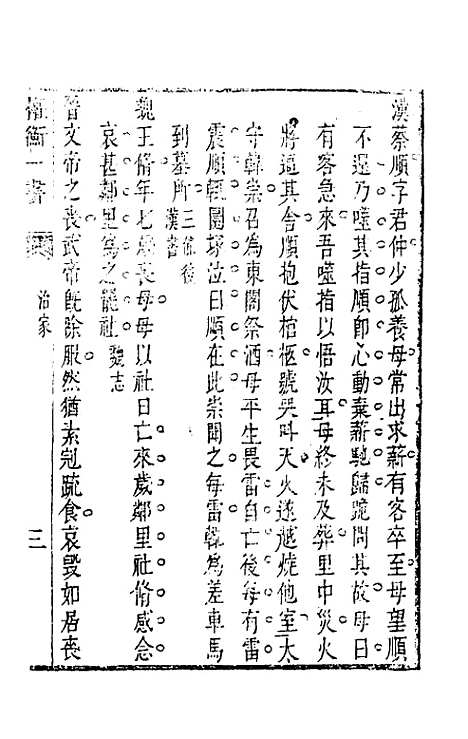 漢蔡順字君仲少孤養母常出求薪有客卒至母望順
不還乃噬其指順即心動棄薪馳歸跪問其故母曰
有客急來吾噬指以悟汝耳母終未及葬里中災火
將逼其舍順抱伏棺柩號哭叫天火遂越燒他室太
守韓崇召為東閣祭酒母平生畏雷自亡後每有雷
震順輒圜塚泣曰順在此崇聞之每雷輒為差車馬
到墓所三後漢書
魏王脩年七歲喪母母以社日亡來歲鄰里社脩感念
哀甚鄰里為之罷社魏志
晉文帝之喪武帝既除服然猶素冠疏食哀毀如居喪
權衡一書
治家
三